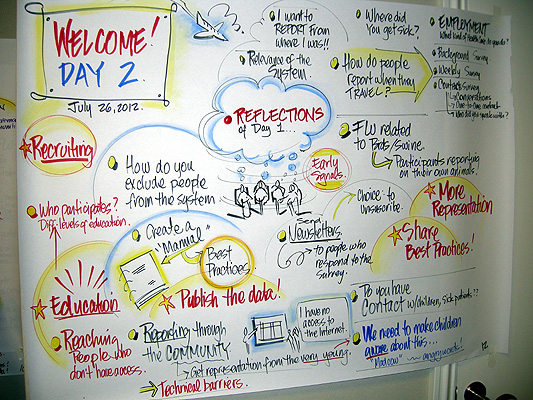 WELCOME!
DAY 2.
July 26, 2012.
I want to
REPORT FROM
where I was!!
Relevance of the
System.
Where did
you get sick?
How do people
report when they
TRAVEL?
EMPLOYMENT
Background Survey
Weekly Survey
Contacts Survey
Conversations
REFLECTIONS
of Day 1...
Recruiting
How do you
exclude people
from the system
Early
Signals.
FLU related
to Birds/Swine.
Participants reporting
on their own animals.
Who participates?
Diff. levels of education.
Create a
"Manual"
Best
Practices.
Send
Newsletters
to people who
respond to the
survey.
Choice to
Unsuscribe.
More
Representation
Share
Best Practices!
Education
Publish the data!
Reaching
People who
don't have access.
Reporting through
the COMMUNITY
Get representation from the very young.
Technical barriers.
I have no
access to
the Internet.
Do you have
Contact w/children, sick patients??
We need to make children
aware about this...
12